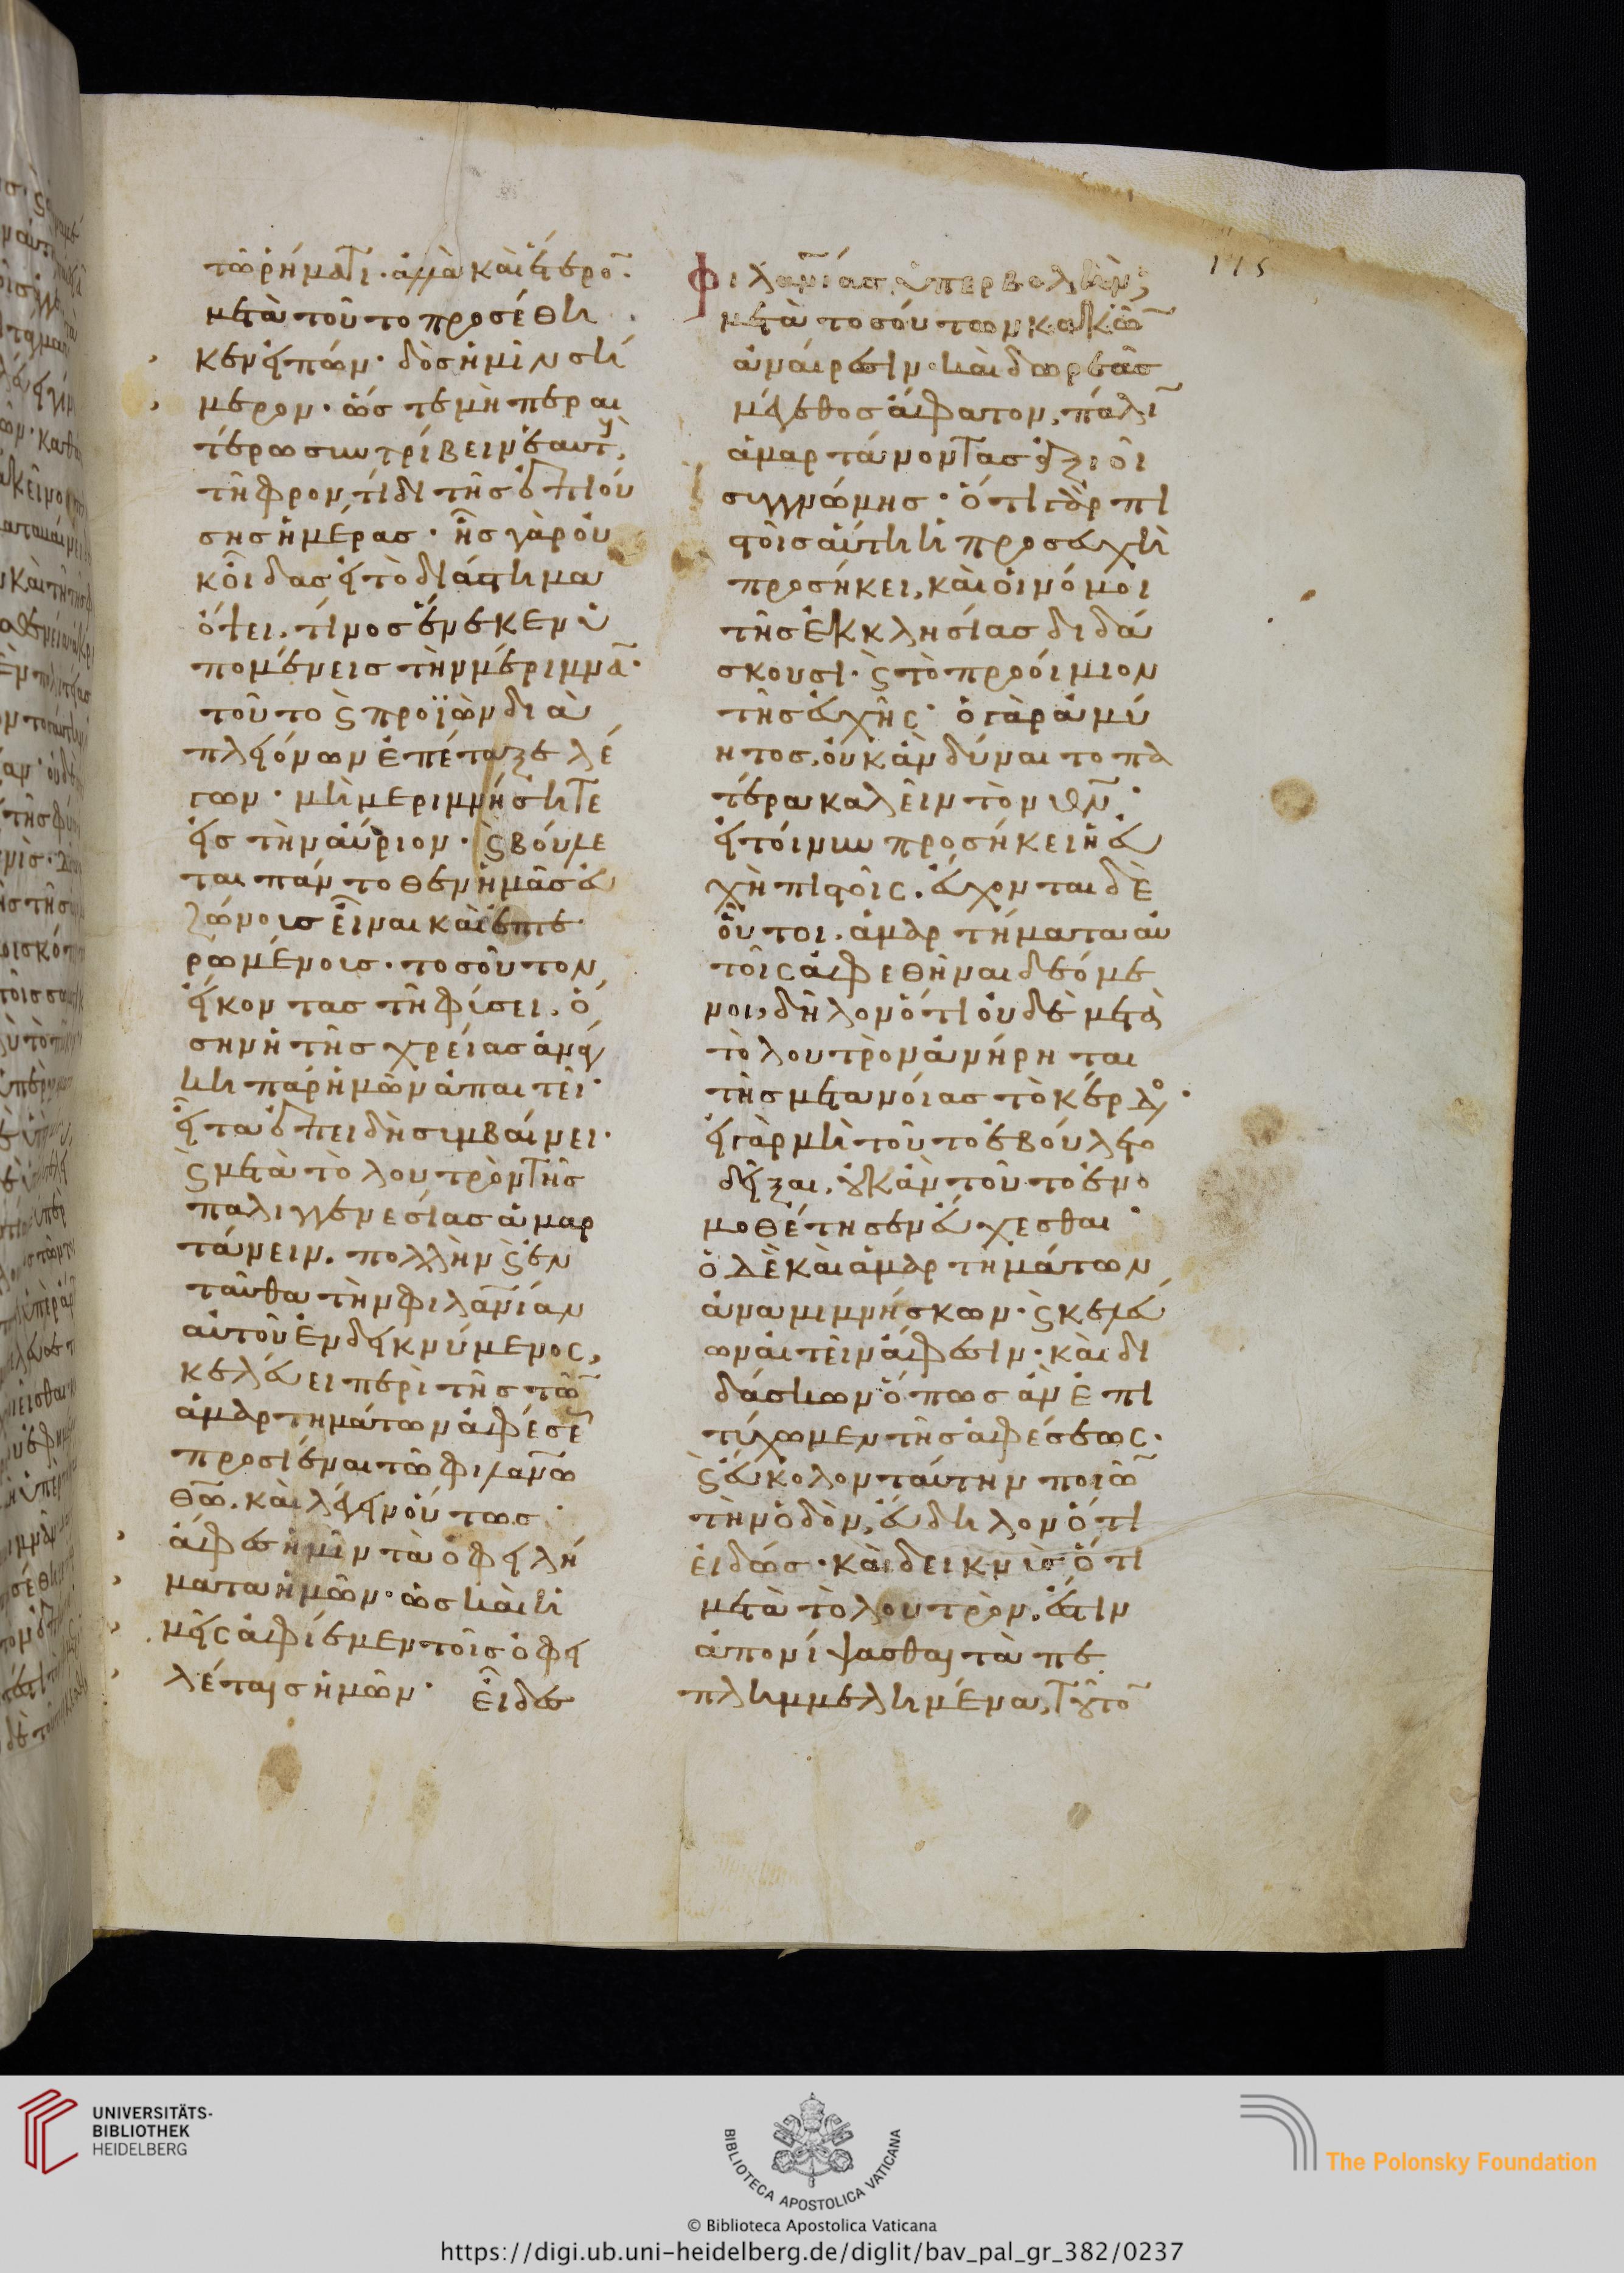 τῶ ῥήματι· ἀλλὰ καὶ ἕτερο̅·
μετὰ τοῦτο προσέθη
κεν εἰπών· δὸς ἡμῖν σή
μερον· ὥστε μὴ περαι
τέρω συντρίβειν ἑαυτ(οὺς),
τῆ φροντίδι τῆς ἐπιού
σης ἡμέρας· ἧς γὰρ οὐ
κ οἶδας εἰ τὸ διάστημα
ὄψει, τίνος ἕνεκεν ὑ
πομένεις τὴν μέριμνα̅·
τοῦτο ϛ προϊὼν διὰ
πλειόνων ἐπέταξε λέ
γων· μὴ μεριμνήσητε
εἰς τὴν αὔριον· ϛ βούλε
ται πάντοθεν ἡμᾶς εὐ
ζώνους εἶναι καὶ ἐπτε
ρωμένους· τοσοῦτον
εἴκοντας τῆ φύσει, ὅ
σην ἡ τῆς χρείας ἀνάγ
κη παρ' ἡμῶν ἀπαιτεῖ·
εἶτα ἐπειδὴ συμβαίνει·
ϛ μετὰ τὸ λουτρὸν τῆς
παλιγγενεσίας ἁμαρ
τάνειν, πολλὴν ϛ ἐν
ταῦθα τὴν φιλανίαν
αὐτοῦ ἐνδεικνύμενος,
κελεύει περὶ τῆς τῶ̅
ἁμαρτημάτων ἀφέσε̅
προσιέναι τῶ φιλανω
θω̅, καὶ λέγειν οὕτως·
ἄφες ἡμῖν τὰ ὀφειλή
ματα ἡμῶν· ὡς καὶ ἡ
μεῖς ἀφίεμεν τοῖς ὀφει
λέταις ἡμῶν· εἶδες
φιλανίας ὑπερβολήν;
μετὰ τοσούτων κακῶ̅
ἀναίρεσιν· καὶ δωρεᾶς
μέγεθος ἄφατον, πάλι̅
ἁμαρτάνοντας ἀξιοῖ
συγγνώμης· ὅτι γὰρ πι
στοῖς αὕτη ἡ προσευχὴ
προσήκει, καὶ οἱ νόμοι
τῆς ἐκκλησίας διδά
σκουσι· ϛ τὸ προοίμιον
τῆς εὐχῆς· ὁ γὰρ ἀμύ
ητος, οὐκ ἂν δύναιτο πα
τέρα καλεῖν τὸν θν̅·
εἰ τοίνυν προσήκει ἡ εὐ
χὴ πιστοῖς, εὔχονται δὲ
οὗτοι, ἁμαρτήματα αὐ
τοῖς ἀφεθῆναι δεόμε
νοι, δῆλον ὅτι οὐδὲ μετὰ
τὸ λουτρὸν ἀνήρηται
τῆς μετανοίας τὸ κέρδ(ος)·
εἰ γὰρ μὴ τοῦτο ἐβούλετο
δεῖξαι, οὐκ ἂν τοῦτο ἐνο
μοθέτησεν εὔχεσθαι·
ὁ δὲ καὶ ἁμαρτημάτων
ἀναμιμνήσκων· ϛ κελεύ
ων αἰτεῖν ἄφεσιν· καὶ δι
δάσκων ὅπως ἂν ἐπι
τύχωμεν τῆς ἀφέσεως·
ϛ εὔκολον ταύτην ποιῶ̅
τὴν ὁδόν, εὔδηλον ὅτι
εἰδώς· καὶ δεικνὺς ὅτι
μετὰ τὸ λουτρόν, ἔστιν
ἀπονίψασθαι τὰ πε
πλημμελημένα, τοῦτο̅
115
UNIVERSITÄTS-
BIBLIOTHEK
HEIDELBERG
BIBLIOTECA APOSTOLICA VATICANA
The Polonsky Foundation
© Biblioteca Apostolica Vaticana
https://digi.ub.uni-heidelberg.de/diglit/bav_pal_gr_382/0237